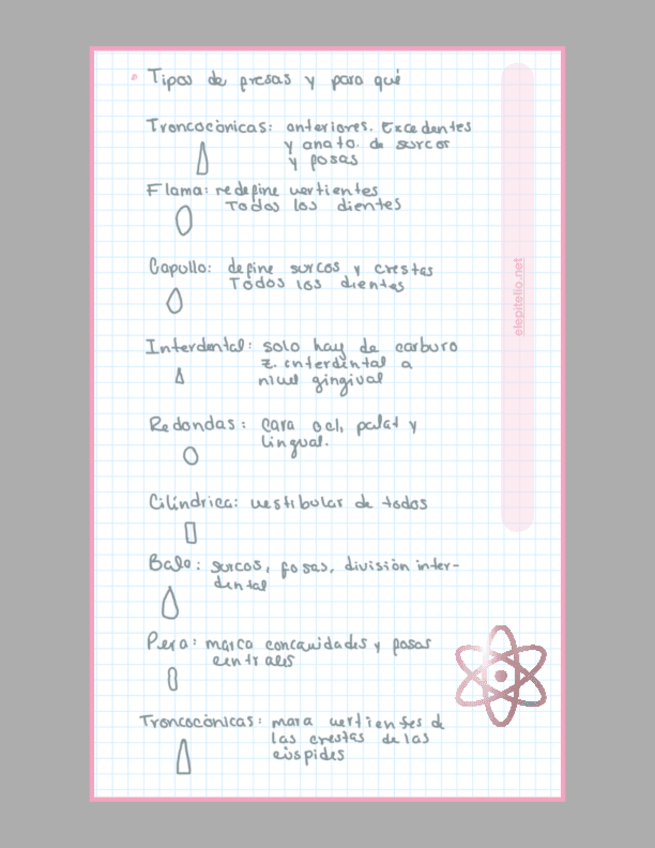 Tipos de fresas y para qué
Troncocónicas: anteriores. Excedentes
y anato. de surcos
y fosas
Flama: redefine vertientes
Todos los dientes
Capullo: define surcos y crestas
Todos los dientes
Interdental: solo hay de carburo
z. interdintal a
nivel gingival
Redondas: Cara ocl, palat y
lingual.
Cilíndrica: vestibular de todos
Bala: surcos, fosas, división inter-
dental
Pera: marca concavidades y fosas
centrales
Troncocónicas: mara vertientes d
las crestas de las
cúspides
elepitelio.net